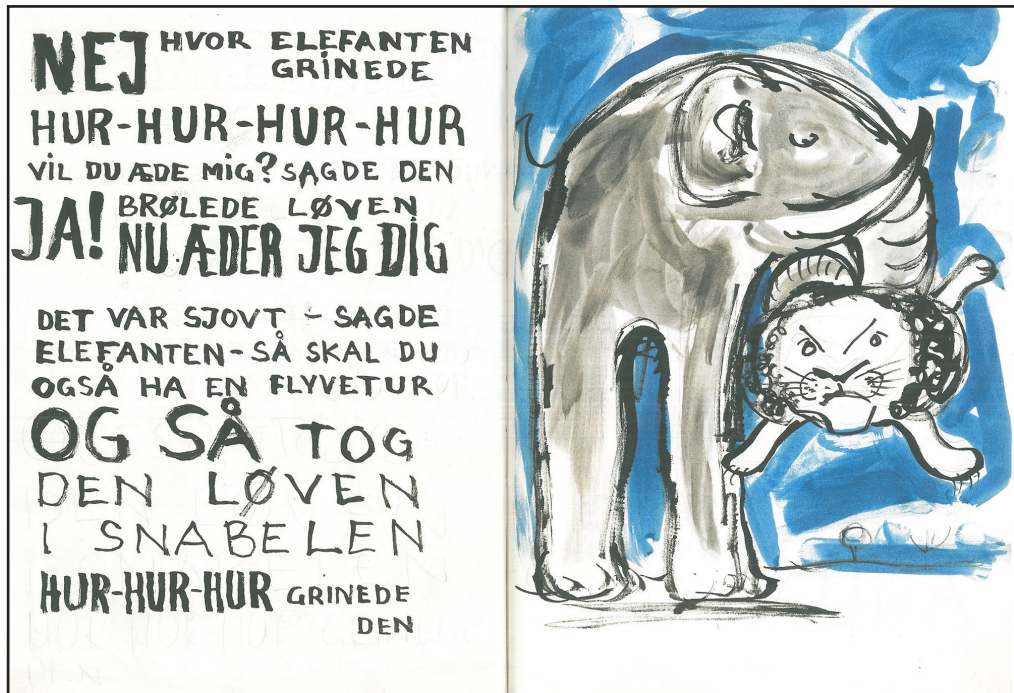 NEJ HVOR ELEFANTEN
GRINEDE
HUR-HUR-HUR-HUR
VIL DU ÆDE MIG? SAGDE DEN
JA! BRØLEDE LØVEN
NU ÆDER JEG DIG
DET VAR SJOVT - SAGDE
ELEFANTEN - SÅ SKAL DU
OGSÅ HA EN FLYVETUR
OG SÅ TOG
DEN LØVEN
I SNABELEN
HUR-HUR-HUR GRINEDE
DEN